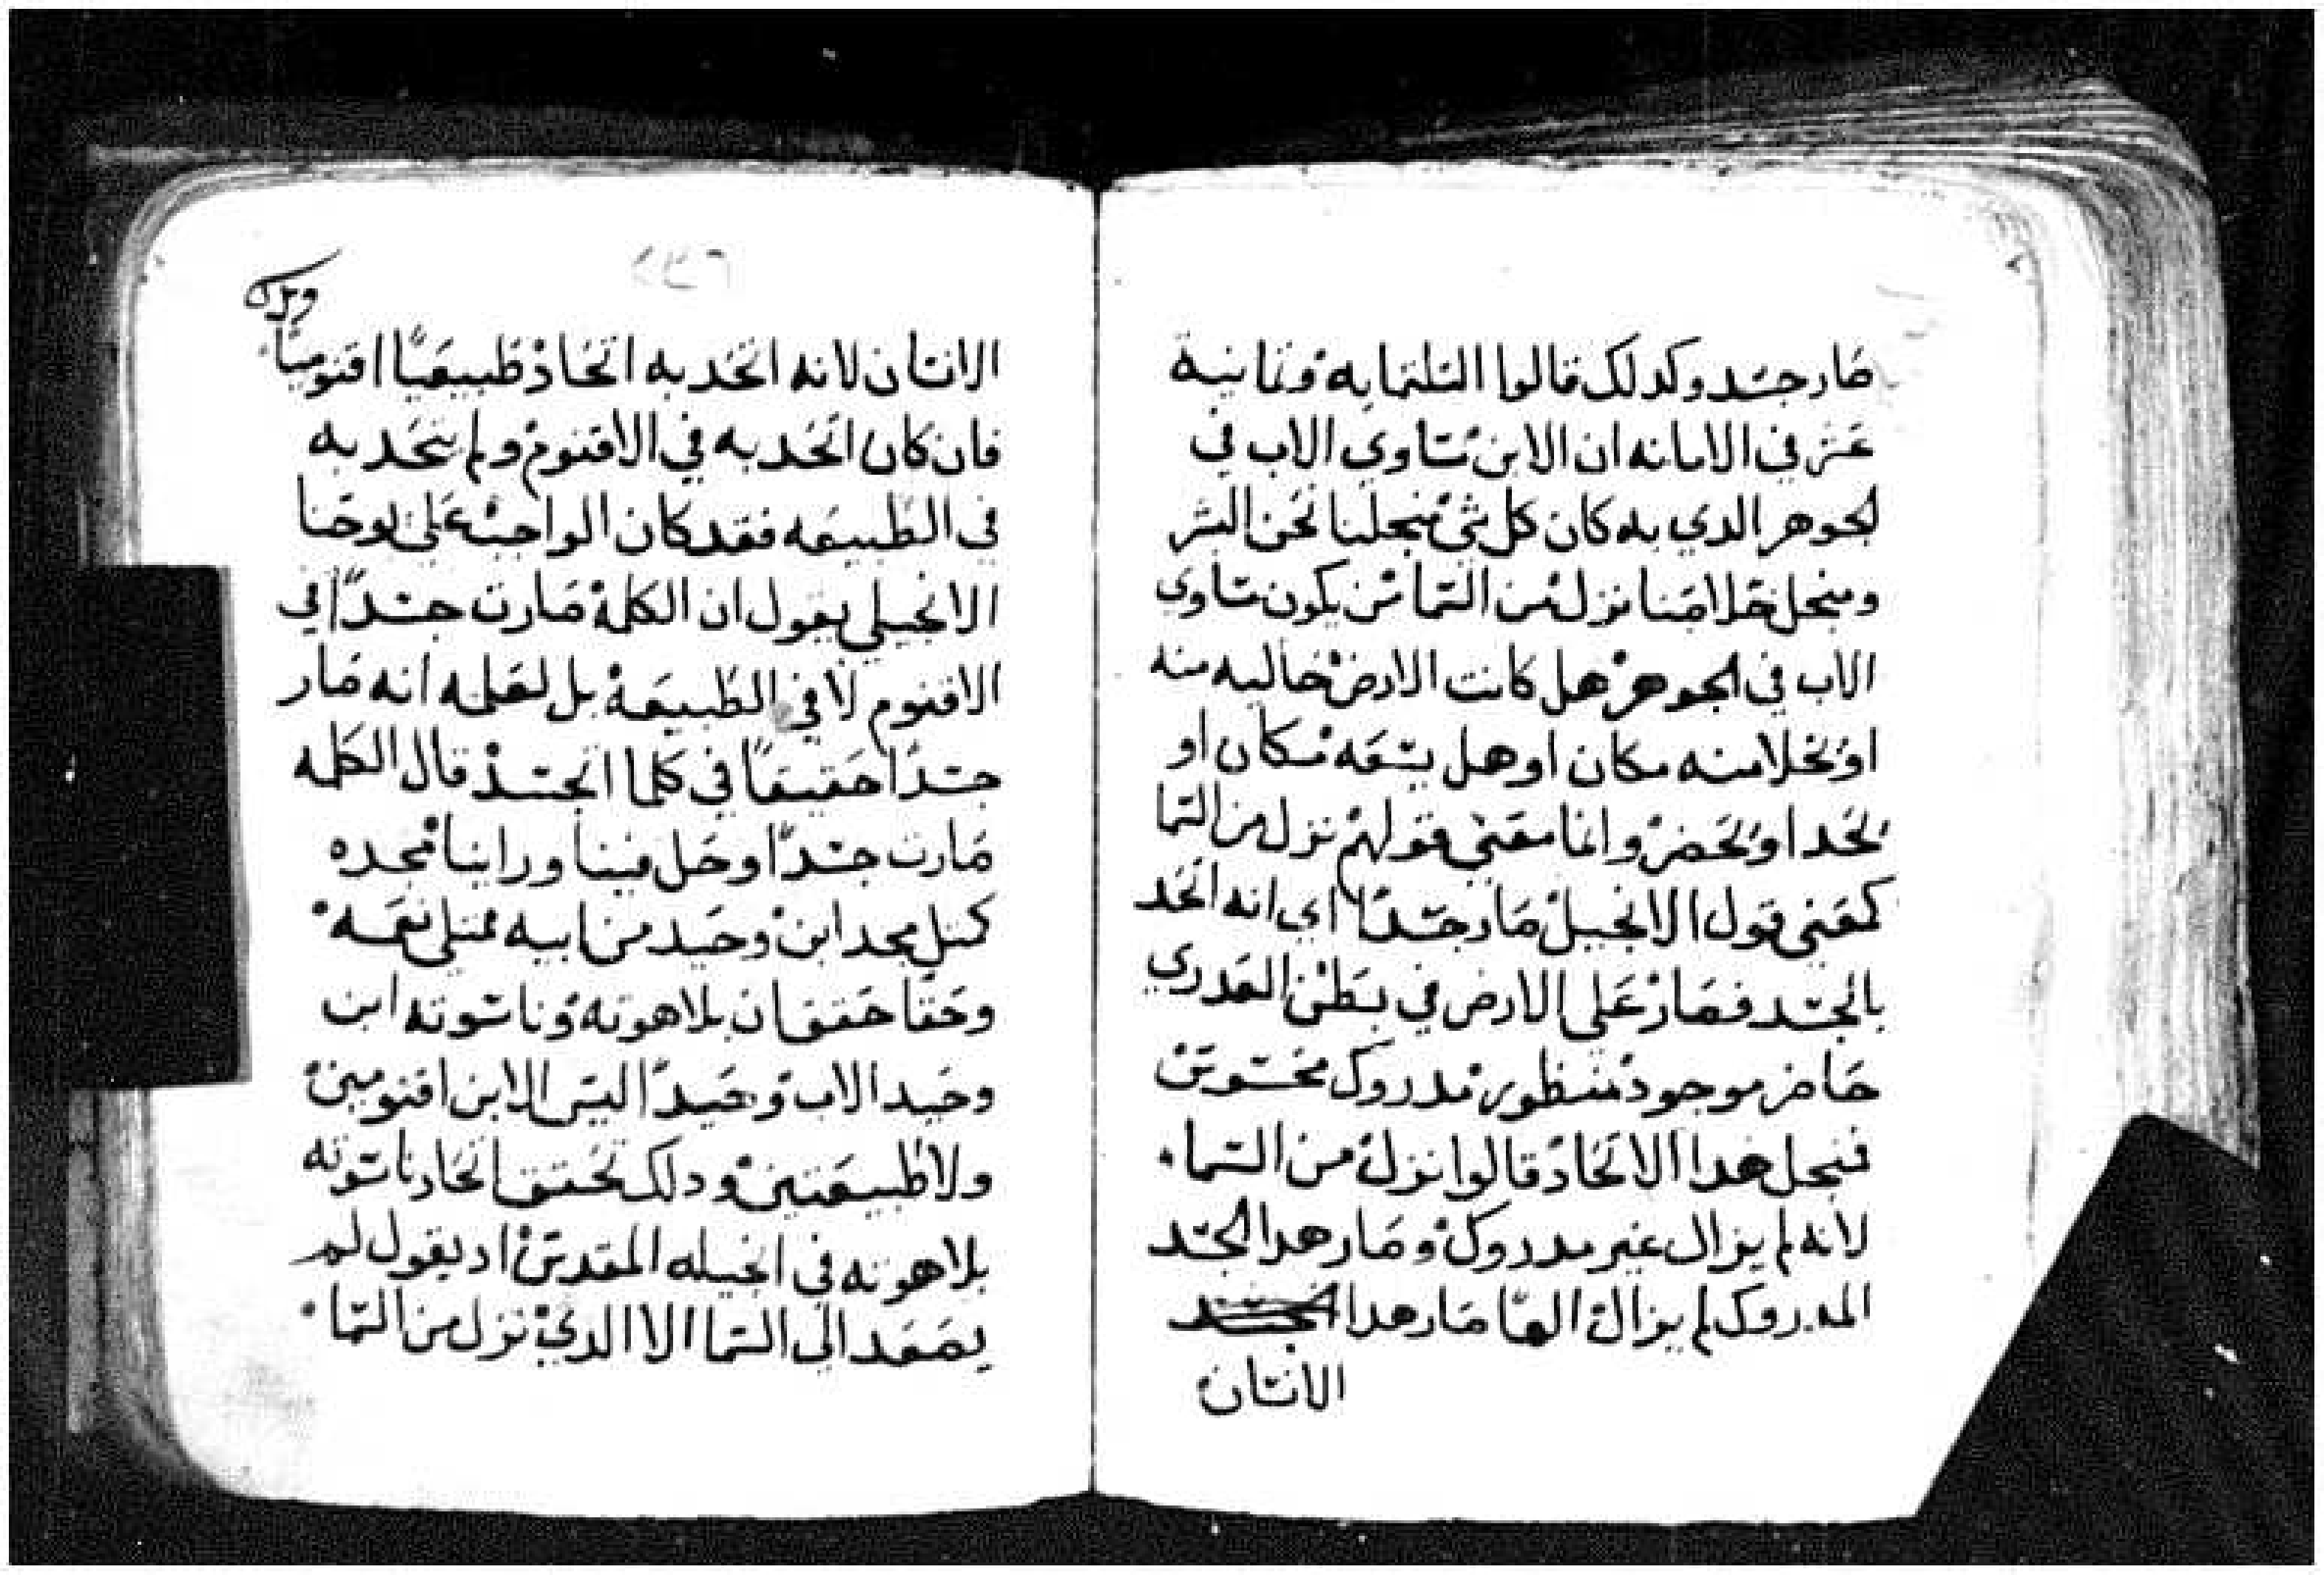 صار جسد وكدلك قالوا التلتمايه وتمانية
عشر في الامانه ان الابن مساوي الاب في
لجوهر الدي به كان كل شي منجلنا نحن البشر
ومنجل خلاصنا نزل من السما من يكون ساوي
الاب في الجوهر هل كانت الارض خاليه منه
او يخلا منه مكان او هل يسعه مكان او
يحد او يحضر وانما معني قولهم نزل من السما
كمعني قول الانجيل صار جسدًا اي انه اتحد
بالجسد فصار على الارض في بطن العدري
حاضر موجود منظور مدروك محسوس
فنجل هدا الاتحاد قالوا نزل من السما
لانه لم يزال غير مدروك وصار هدا الجسد
المدروك لم يزال الهًا صار هدا الجسد
الانسان
٢٣٦
الانسان لانه اتحد به اتحاد طبيعيًا اقنوميًا
فان كان اتحد به في الاقنوم ولم يتحد به
في الطبيعه فقد كان الواجب على يوحنا
الانجيلي يقول ان الكلمة صارت جسدًا في
الاقنوم لا في الطبيعة بل لعلمه انه صار
جسدًا حقيقًا في كلما الجسد قال الكلمه
صارت جسدًا وحل فينا وراينا مجده
كمتل مجد ابن وحيد من ابيه ممتلي نعمه
وحقا حقق ان بلاهوته وناسوته ابن
وحيد الاب وحيدًا ليس الابن اقنومين
ولا طبيعتين ودلك تحقق اتحاد ناسوته
بلاهوته في انجيله المقدس اد يقول لم
يصعد الي السما الا الدي نزل من السما